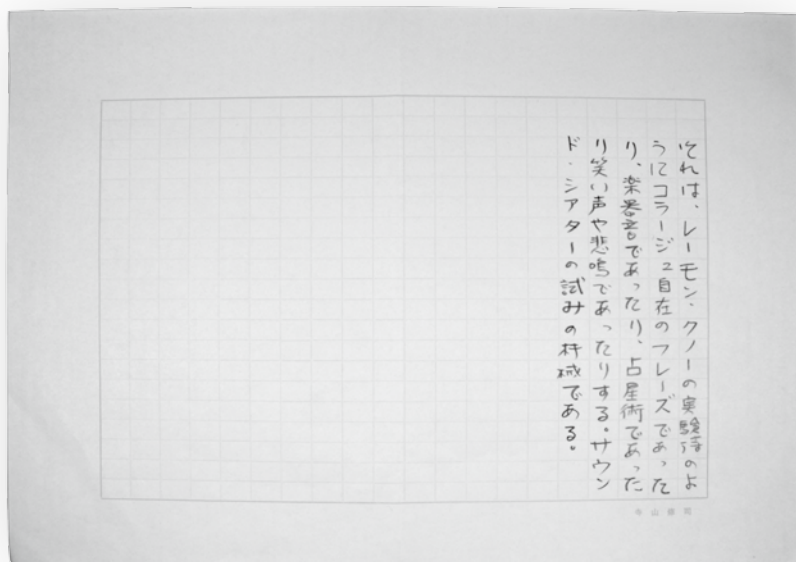 それは、レーモン・クノーの実験詩のよ
うにコラージュ自在のフレーズであった
り、楽器音であったり、占星術であった
り笑い声や悲鳴であったりする。サウン
ド・シアターの試みの 域である。
寺山修司